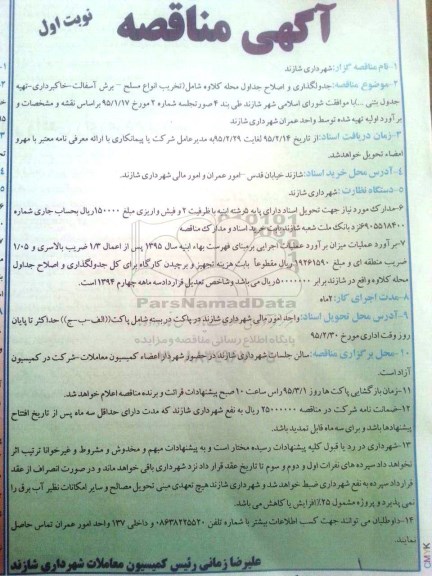 آگهی مناقصه
نوبت اول
۱-نام مناقصه گزار:شهرداری شازند
۲-موضوع مناقصه:جدولگذاری و اصلاح جداول محله کلاوه شامل(تخریب انواع مسلح – برش آسفالت-خاکبرداری-تهیه
جدول بتنی ...)با موافقت شورای اسلامی شهر شازند طی بند ۴ صورتجلسه شماره ۲ مورخ ۹۵/۱/۱۷ براساس نقشه و مشخصات و
برآورد اولیه تهیه شده توسط واحد عمران شهرداری شازند
۳-زمان دریافت اسناد:از تاریخ ۹۵/۲/۱۴ لغایت ۹۵/۲/۲۹به مدیرعامل شرکت یا پیمانکاری با ارائه معرفی نامه معتبر با مهرو
امضاء تحویل خواهدشد.
۴-آدرس محل خرید اسناد:شازند خیابان قدس –امور عمران و امور مالی شهرداری شازند.
۵-دستگاه نظارت :شهرداری شازند
۶-مدارک مورد نیاز جهت تحویل اسناد دارای پایه ۵رشته ابنیه با ظرفیت ۲ و فیش واریزی مبلغ ۱۵۰۰۰۰ریال بحساب جاری شماره
نزد بانک ملت شعبه شازند بابت خرید اسناد و مدارک مناقصه
۷-برآورد عملیات میزان برآورد عملیات اجرایی برمبنای فهرست بهاء ابنیه سال ۱۳۹۵ پس از اعمال ۱/۳ ضریب بالاسری و ۱/۰۵
ضریب منطقه ای و مبلغ ریال مقطوعاً بابت هزینه تجهیز و برچیدن کارگاه برای کل جدولگذاری و اصلاح جداول
محله کلاوه واقع در شازند برابر ریال می باشد وشاخص تعدیل قراردادسه ماهه چهارم ۱۳۹۴ است.
۸-مدت اجرای کار: ۲ماه
۹-آدرس محل تحویل اسناد: واحد امور مالی شهرداری شازند در پاکت دربسته شامل پاکت((الف-ب-ج)) حداکثر تا پایان
روز وقت اداری مورخ ۹۵/۲/۳۰
۱۰-محل برگزاری مناقصه:سالن جلسات شهرداری شازند در حضور شهردار اعضاء کمیسیون معاملات-شرکت در کمیسیون
آزاد است.
۱۱-زمان بازگشایی پاکت ها روز ۹۵/۳/۱ راس ساعت ۱۰صبح پیشنهادات قرائت و برنده مناقصه اعلام خواهد شد.
۱۲-ضمانت نامه شرکت در مناقصه ۲۵۰۰۰۰۰۰ ریال به نفع شهرداری شازند که مدت دارای حداقل سه ماه پس از تاریخ افتتاح
پیشنهادها باشد و برای سه ماه قابل تمدید باشد.
۱۳-شهرداری در رد یا قبول کلیه پیشنهادات رسیده مختار است و به پیشنهادات مبهم و مخدوش و مشروط و غیرخوانا ترتیب اثر
نخواهد داد سپرده های نفرات اول و دوم و سوم تا تاریخ عقد قرار داد نزد شهرداری باقی خواهد ماند و در صورت انصراف از عقد
قرارداد سپرده به نفع شهرداری ضبط خواهد شد و شهرداری شازند هیچ تعهدی مبنی تحویل مصالح و سایر امکانات نظیر آب برق را
نمی پذیرد و پروژه مشمول ۲۵٪افزایش یا کاهش می باشد.
۱۴-داوطلبان می توانند جهت کسب اطلاعات بیشتر با شماره تلفن ۰۸۶۳۸۲۲۵۵۲۰ و داخلی ۱۳۷ واحد امور عمران تماس حاصل
نمایند.
علیرضا زمانی رئیس کمیسیون معاملات شهرداری شازند
ParsNamadData
پایگاه اطلاع رسانی مناقصه و مزایده
CMYK